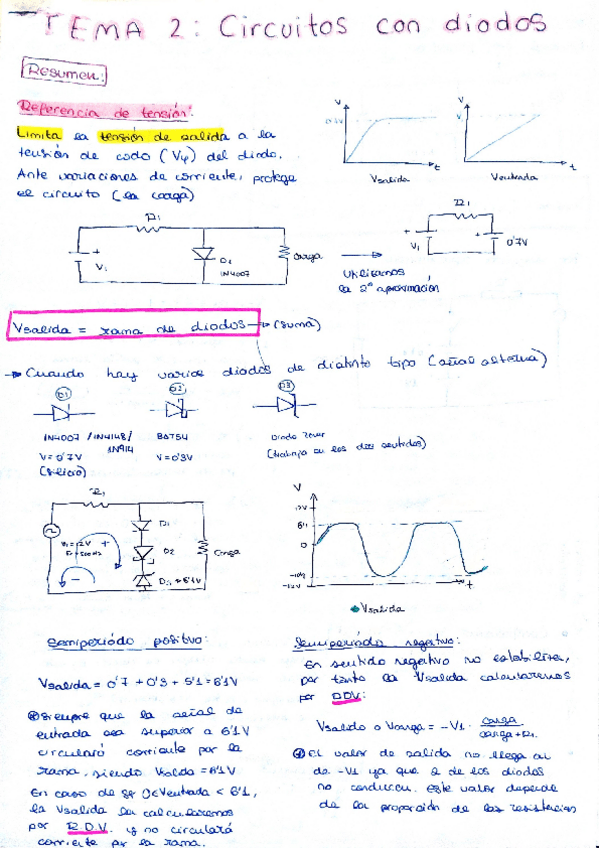 TEMA 2: Circuitos con diodos
Resumen:
Referencia de tensión:
Limita la tensión de salida a la
tensión de codo (Vφ) del diodo.
Ante variaciones de corriente, protege
el circuito (la carga)
V
t
Vsalida
V
t
Ventrada
R1
V1
D1
1N4007
carga
Utilizamos
la 2ª aproximación
R1
V1
0'7V
Vsalida = rama de diodos → (suma)
→ Cuando hay varios diodos de distinto tipo (señal alterna)
D1
D2
D3
1N4007 / 1N4148/
1N914
V=0'7V
(Silicio)
BAT54
V=0'3V
Diodo Zener
(trabaja en los dos sentidos)
R1
D1
D2
Carga
V
12V
6'1
0
-12V
t
Vsalida
Semiperíodo positivo:
Vsalida = 0'7 + 0'3 + 5'1 = 6'1V
Siempre que la señal de
entrada sea superior a 6'1V
circulará corriente por la
rama, siendo Vsalida = 6'1V
En caso de 0<Ventrada < 6'1,
la Vsalida la calcularemos
por R.D.V. y no circulará
corriente por la rama.
Semiperíodo negativo:
En sentido negativo no estabiliza,
por tanto la Vsalida calcularemos
por DDV:
Vsalida o Vcarga = -V1 · carga / carga+R1
El valor de salida no llega al
de -V1 ya que 2 de los diodos
no conducen. Este valor depende
de la proporción de las resistencias